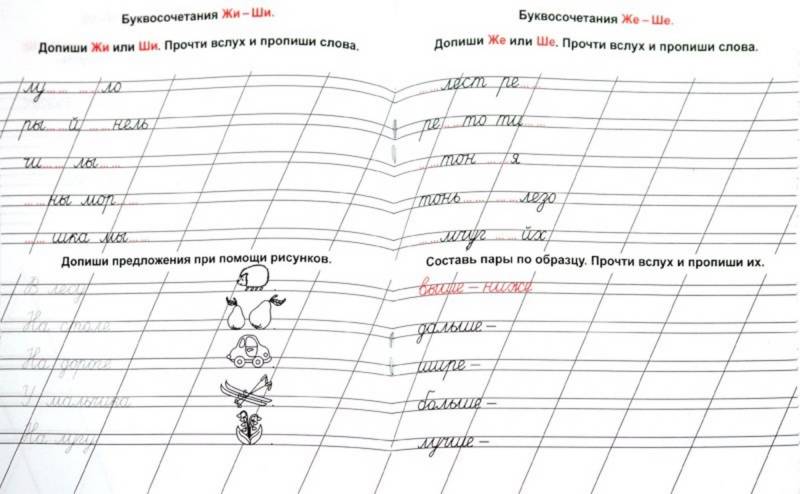 Буквосочетания Жи – Ши.
Допиши Жи или Ши. Прочти вслух и пропиши слова.
лу...... ......ло
ры......й ......нель
чи...... лы......
......ны мор......
......шка мы......
Допиши предложения при помощи рисунков.
В лесу
На столе
На дороге
У мальчика
На лугу
Буквосочетания Же – Ше.
Допиши Же или Ше. Прочти вслух и пропиши слова.
......лест ре......
ре......то ти......
......тон ......я
тонь...... ......лезо
......мчуг ......йх
Составь пары по образцу. Прочти вслух и пропиши их.
выше – ниже
дальше –
шире –
больше –
лучше –